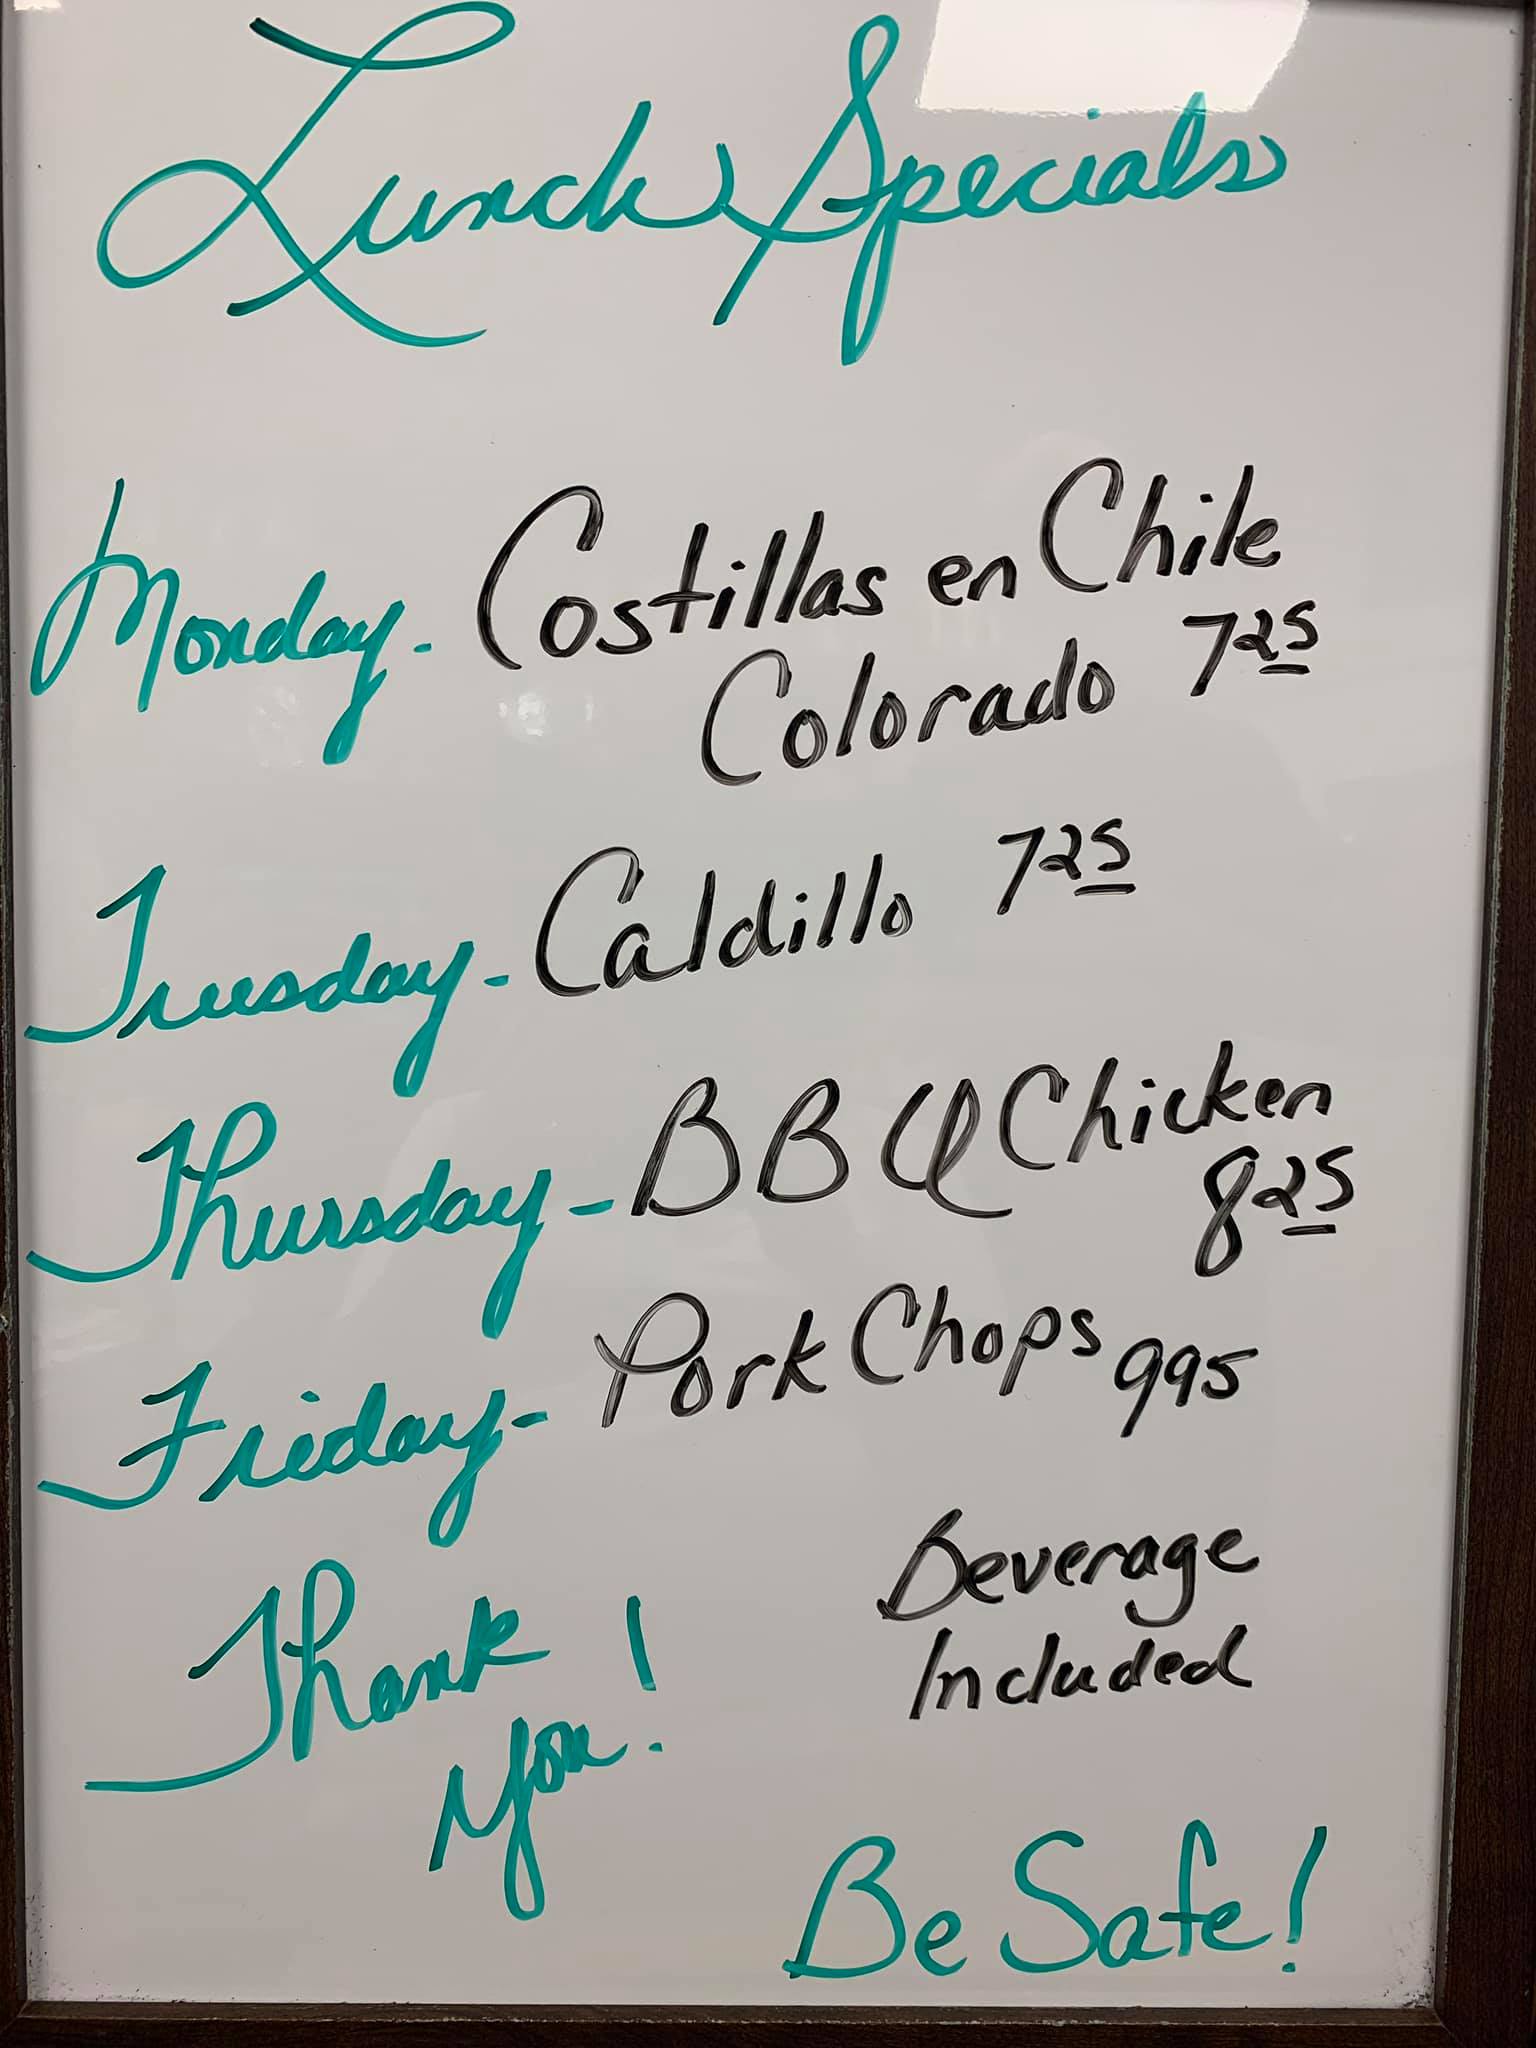 Lunch Specials
Monday - Costillas en Chile
Colorado 7 25
Tuesday - Caldillo 7 25
Thursday - BBQ Chicken
8 25
Friday - Pork Chops 995
Beverage
Included
Thank
you!
Be Safe!